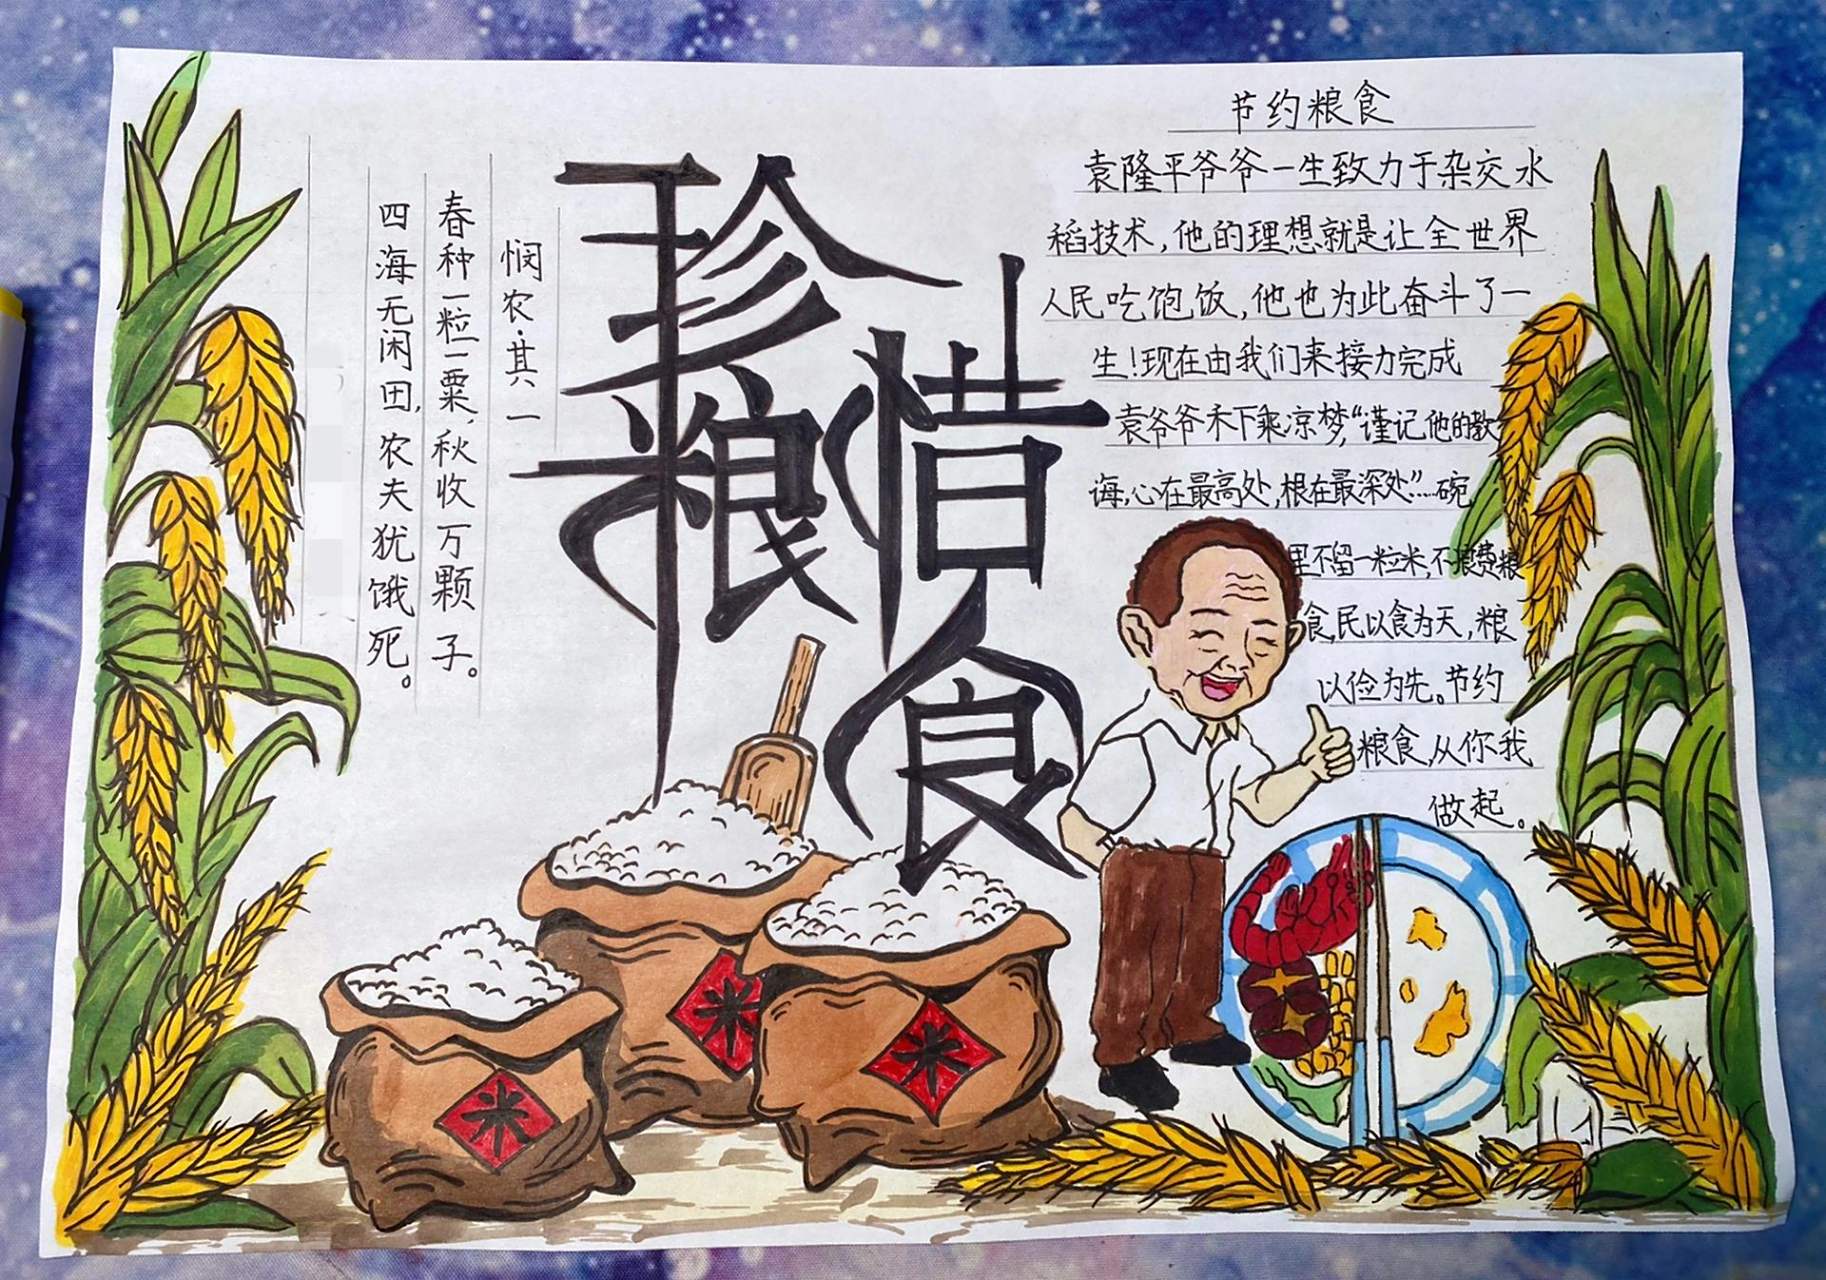 悯农·其一
春种一粒粟，秋收万颗子。
四海无闲田，农夫犹饿死。
珍惜粮食
节约粮食
袁隆平爷爷一生致力于杂交水
稻技术，他的理想就是让全世界
人民吃饱饭，他也为此奋斗了一
生！现在由我们来接力完成
袁爷爷禾下乘凉梦，“谨记他的教
诲，心在最高处，根在最深处”……碗
里不留一粒米，不浪费粮
食，民以食为天，粮
以俭为先。节约
粮食，从你我
做起。
米
米
米